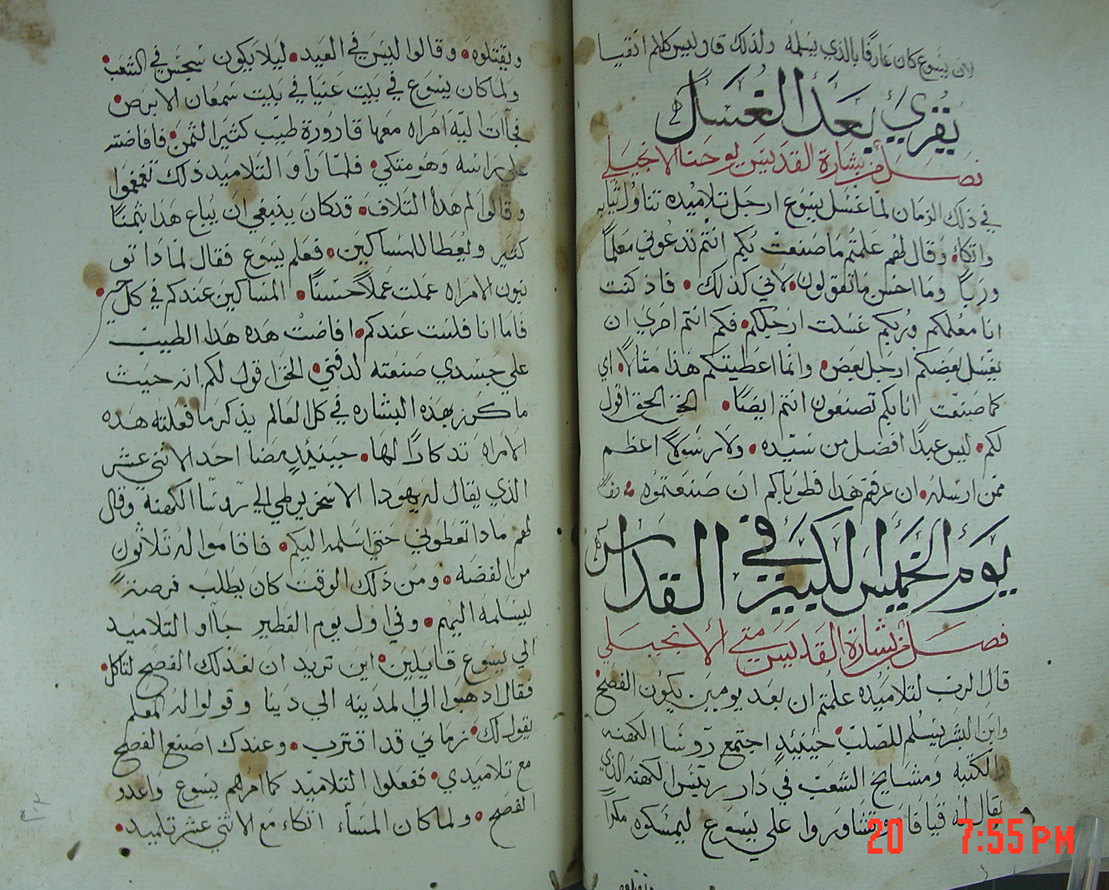 لان يسوع كان عارفا بالذي يسلمه ولذلك قال ليس كلكم انقيا
يقري بعد الغسل
فصل من بشارة القديس يوحنا الانجيلي
في ذلك الزمان لما غسل يسوع ارجل تلاميذه تناول ثيابه
واتكاء وقال لهم علمتم ما صنعت بكم انتم تدعوني معلما
وربا وما احسن ما تقولون لاني كذلك فاذ كنت
انا معلمكم وربكم غسلت ارجلكم فكم انتم احري ان
يغسل بعضكم ارجل بعض وانما اعطيتكم هذا مثالا اي
كما صنعت انا بكم تصنعون انتم ايضا الحق الحق اقول
لكم ليس عبدا افضل من سيده ولا رسولا اعظم
ممن ارسله ان عرفتم هذا فطوباكم ان صنعتموه
يوم الخميس الكبير في القداس
فصل من بشارة القديس متي الانجيلي
قال الرب لتلاميذه علمتم ان بعد يومين يكون الفصح
وابن البشر يسلم للصلب حينيد اجتمع روسا الكهنه
والكتبه ومشايخ الشعب في دار رييس الكهنه الذي
يقال له قيافا وتشاوروا علي يسوع ليمسكوه مكرا
ويقتلوه
ويقتلوه وقالوا ليس في العيد ليلا يكون سجس في الشعب
ولما كان يسوع في بيت عنيا في بيت سمعان الابرص
جأت اليه امراه معها قارورة طيب كثير الثمن فافاضته
علي راسه وهو متكي فلما راوا التلاميذ ذلك تقمقموا
وقالوا لم هدا التلاف قد كان ينبغي ان يباع هذا بثمنا
كثير ولعطا للمساكين فعلم يسوع فقال لماذا تو
نبون الامراه عملت عملا حسنا المساكين عندكم في كل حين
فاما انا فلست عندكم افاضت هذه هدا الطيب
علي جسدي صنعته لدفني الحق اقول لكم انه حيث
ما كرز بهذه البشاره في كل العالم يذكر ما فعلته هده
الامراه تدكارا لها حينيد مضا احد الاثني عشر
الذي يقال له يهودا الاسخريوطي الي روسا الكهنه وقال
لهم مادا تعطوني حتي اسلمه اليكم فاقاموا له ثلاثون
من الفضه ومن ذلك الوقت كان يطلب فرصة
ليسلمه اليهم وفي اول يوم الفطير جأوا التلاميذ
الي يسوع قايلين اين تريد ان لعد لك الفصح لتاكل
فقال ادهبوا الي المدينه الي دينا وقولوا له المعلم
يقول لك زماني قد اقترب وعندك اصنع الفصح
مع تلاميدي ففعلوا التلاميد كما امرهم يسوع واعدو
الفصح ولما كان المسأ اتكاء مع الاثني عشر تلميد
20 7:55 PM